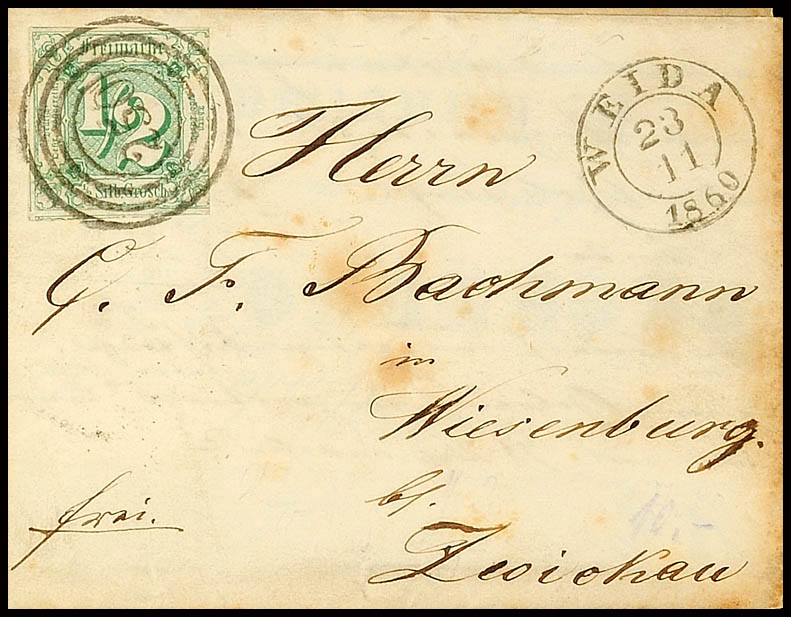 Freimarke
1/2
Silb. Grosch.
WEIDA
23
11
1860
Herrn
C. F. Bachmann
in
Wiesenburg.
bs.
Zwickau
frei.
10,-